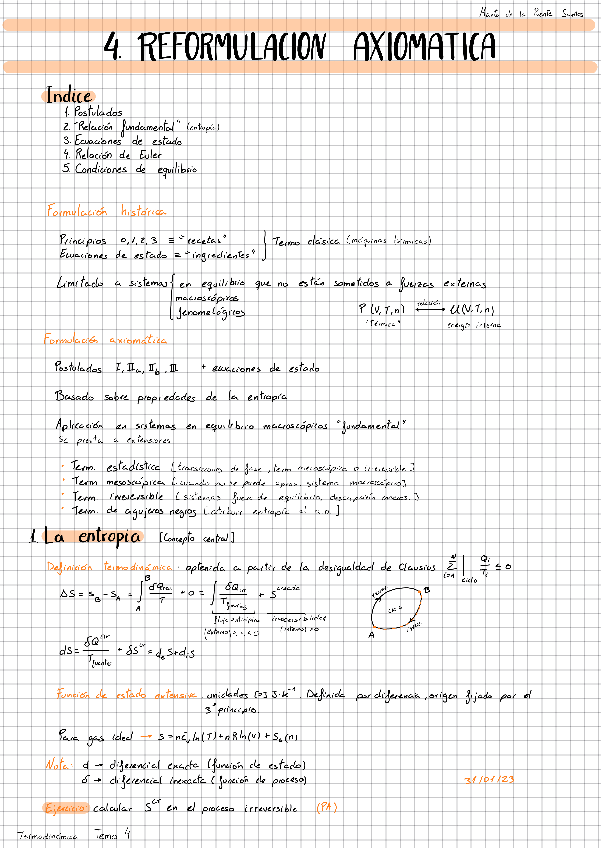 Marta de la Puente Santos
4. REFORMULACION AXIOMATICA
Indice
1. Postulados
2. "Relación fundamental" (entropía)
3. Ecuaciones de estado
4. Relación de Euler
5. Condiciones de equilibrio
Formulación histórica
Principios 0,1,2,3 ≡ "recetas"
Ecuaciones de estado ≡ "ingredientes" } Termo clásica (máquinas térmicas)
Limitado a sistemas { en equilibrio que no están sometidos a fuerzas externas
macroscópicos
fenomelógicos
P (V,T,n) ⟷ U(V,T,n)
"térmica" energía interna
Formulación axiomática
Postulados I, IIa, IIb, III + ecuaciones de estado
Basado sobre propiedades de la entropía
Aplicación en sistemas en equilibrio macroscópicos "fundamental"
Se presta a extensiones
• Term. estadística [transiciones de fase, term mesoscópica o irreversible]
• Term mesoscópica [cuando no se puede aprox. sistema macroscópico]
• Term irreversible [sistemas fuera de equilibrio, descripción macros.]
• Term. de agujeros negros [atribuir entropía al a.n.]
1. La entropía [Concepto central]
Definición termodinámica: obtenida a partir de la desigualdad de Clausius Σ i=1 N | ciclo Qi/Ti ≤ 0
ΔS = SB - SA = ∫AB δQrev/T + 0 = ∫ δQirr/Tfuentes + S creada
A B
dS = δQirr/Tfuente + δScr = deS + diS
Función de estado extensiva, unidades [=] J·K⁻¹. Definida por diferencia, origen fijado por el
3º principio.
Para gas ideal → S = nCv ln(T) + nR ln(V) + S0(n)
Nota: d → diferencial exacta (función de estado)
δ → diferencial inexacta (función de proceso)
31/01/23
Ejercicio calcular Scr en el proceso irreversible (PA)
Termodinámica Tema 4